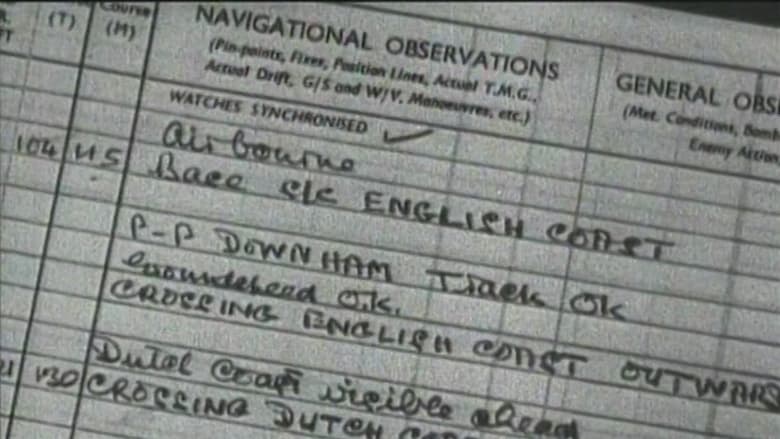 (T)
Course
(M)
NAVIGATIONAL OBSERVATIONS
(Pin-points, Fixes, Position Lines, Actual T.M.G.,
Actual Drift, G/S and W/V, Manoeuvres, etc.)
GENERAL OBS
(Met. Conditions, Bomb
Enemy Action
WATCHES SYNCHRONISED ✓
Airbourne
104 115 Base c/c ENGLISH COAST
P-P DOWNHAM Track OK
Groundspeed O.K.
CROSSING ENGLISH COAST OUTWARD
Dutch Coast visible ahead
130 CROSSING DUTCH